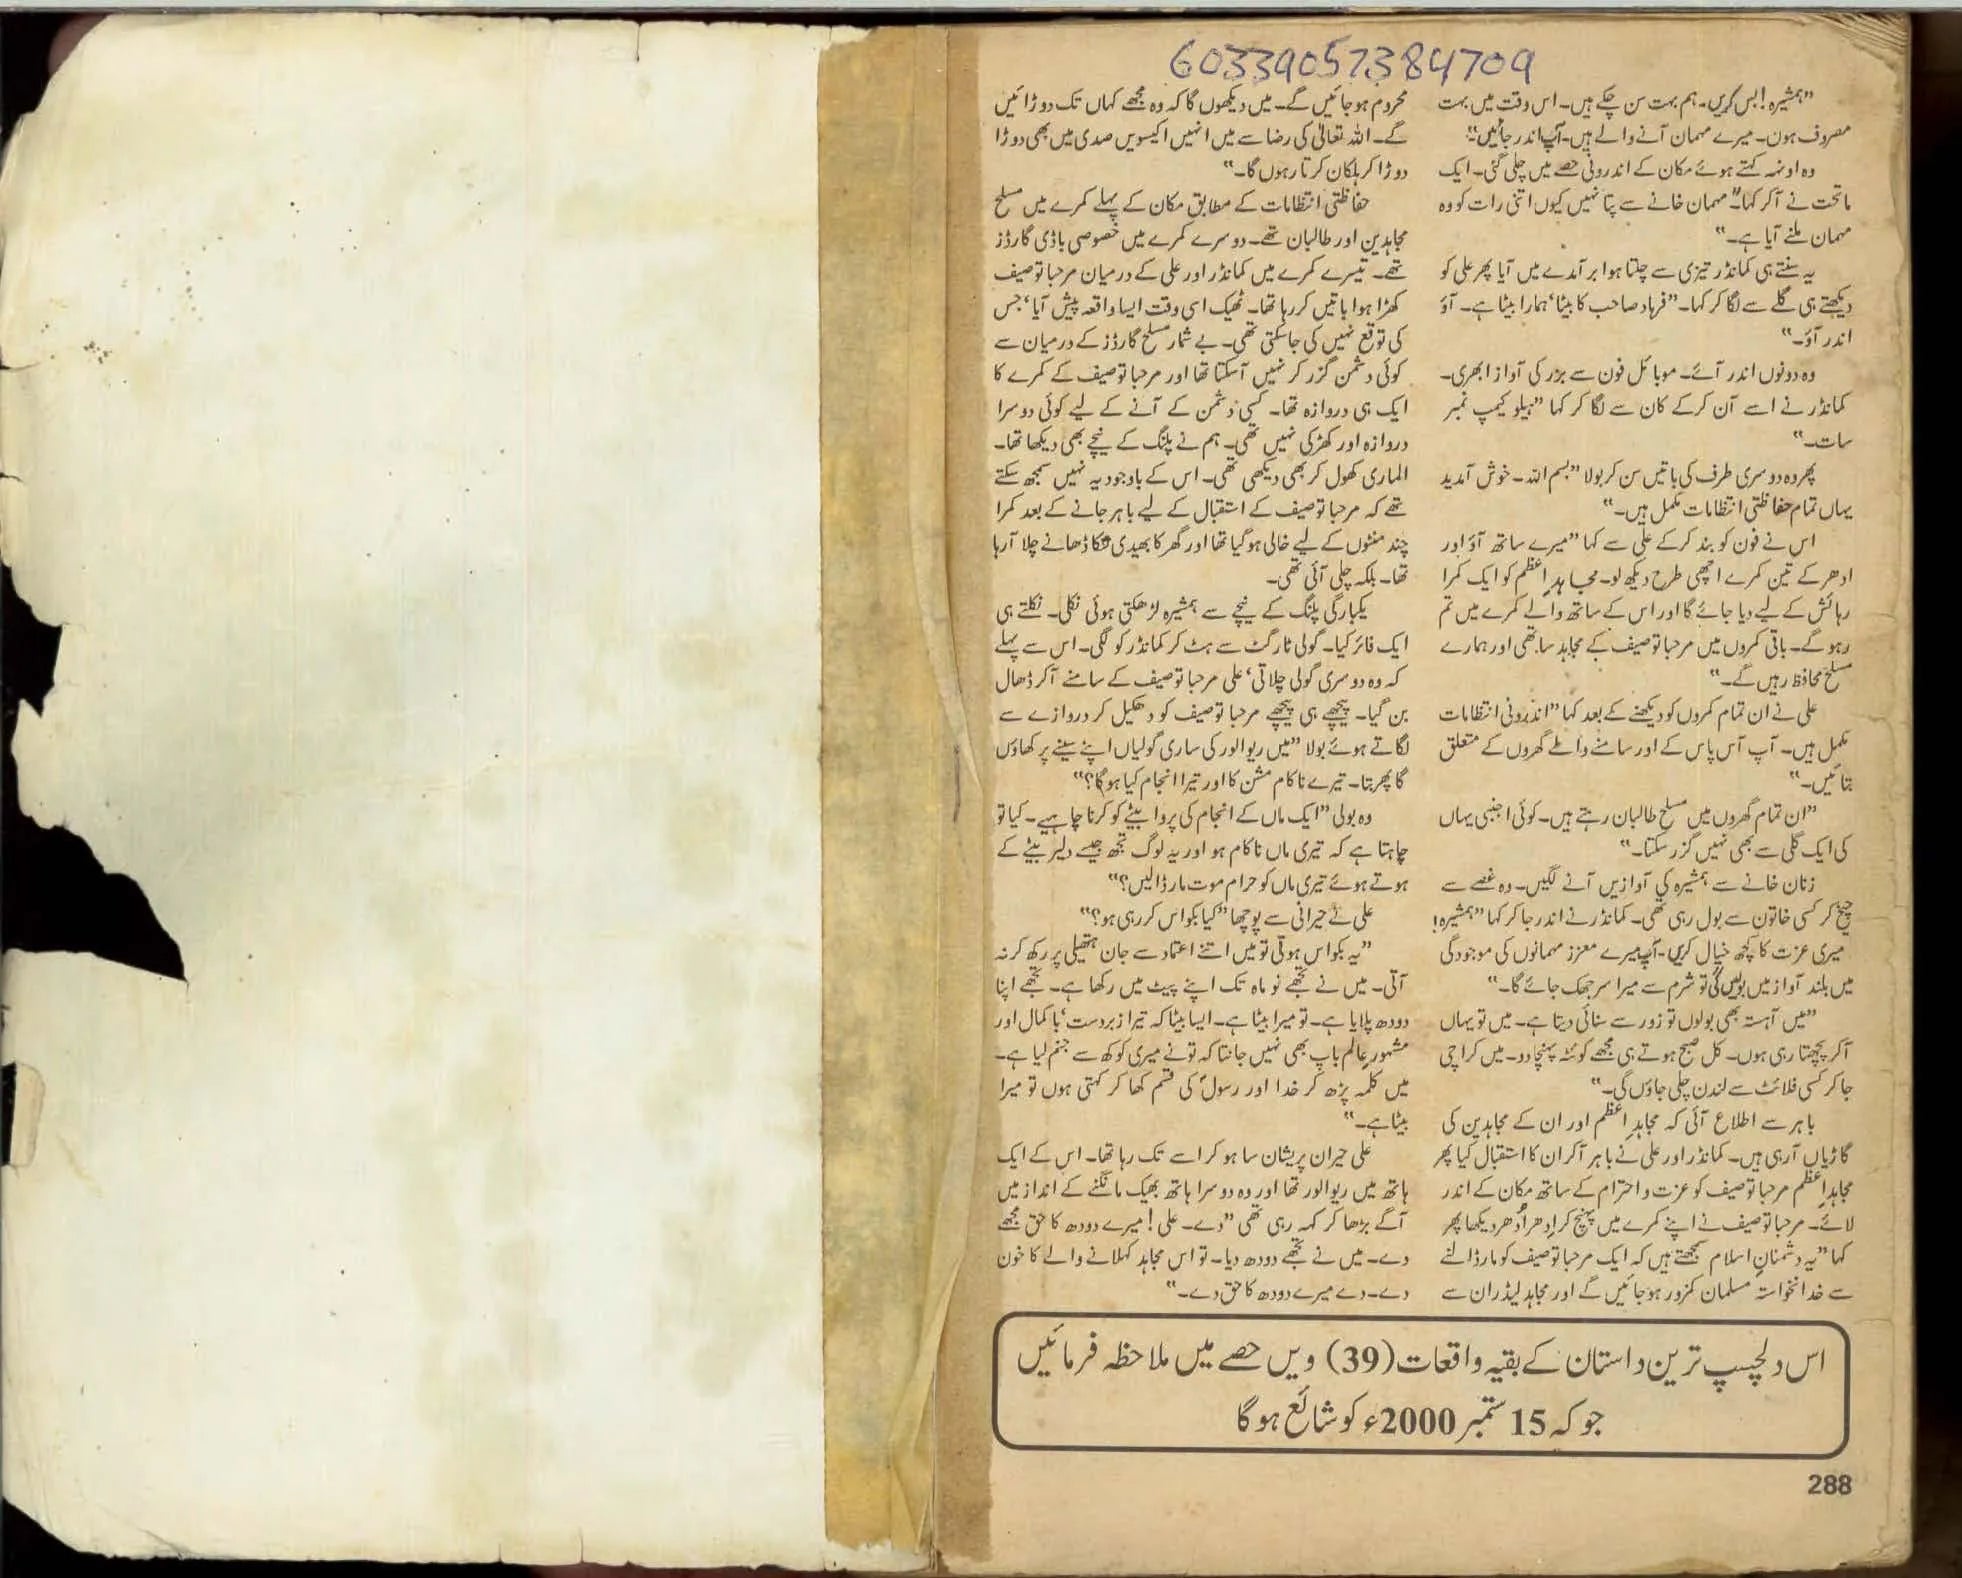 60339057384709
”ہمشیرہ! بس کریں۔ ہم بہت سن چکے ہیں۔ اس وقت میں بہت
مصروف ہوں۔ میرے مہمان آنے والے ہیں۔ آپ اندر جائیں۔“
وہ اونہہ کہتے ہوئے مکان کے اندرونی حصے میں چلی گئی۔ ایک
ماتحت نے آکر کہا۔ ”مہمان خانے سے پتا نہیں کیوں اتنی رات کو وہ
مہمان ملنے آیا ہے۔“
یہ سنتے ہی کمانڈر تیزی سے چلتا ہوا برآمدے میں آیا پھر علی کو
دیکھتے ہی گلے سے لگا کر کہا۔ ”فرہاد صاحب کا بیٹا‘ ہمارا بیٹا ہے۔ آؤ
اندر آؤ۔“
وہ دونوں اندر آئے۔ موبائل فون سے بزر کی آواز ابھری۔
کمانڈر نے اسے آن کرکے کان سے لگا کر کہا ”ہیلو کیمپ نمبر
سات۔“
پھر وہ دوسری طرف کی باتیں سن کر بولا ”بسم اللہ۔ خوش آمدید
یہاں تمام حفاظتی انتظامات مکمل ہیں۔“
اس نے فون کو بند کرکے علی سے کہا ”میرے ساتھ آؤ اور
ادھر کے تین کمرے اچھی طرح دیکھ لو۔ مجاہدِ اعظم کو ایک کمرا
رہائش کے لیے دیا جائے گا اور اس کے ساتھ والے کمرے میں تم
رہو گے۔ باقی کمروں میں مرحبا توصیف کے مجاہد ساتھی اور ہمارے
مسلح محافظ رہیں گے۔“
علی نے ان تمام کمروں کو دیکھنے کے بعد کہا ”اندرونی انتظامات
مکمل ہیں۔ آپ آس پاس کے اور سامنے والے گھروں کے متعلق
بتائیں۔“
”ان تمام گھروں میں مسلح طالبان رہتے ہیں۔ کوئی اجنبی یہاں
کی ایک گلی سے بھی نہیں گزر سکتا۔“
زنان خانے سے ہمشیرہ کی آوازیں آنے لگیں۔ وہ غصے سے
چیخ کر کسی خاتون سے بول رہی تھی۔ کمانڈر نے اندر جاکر کہا ”ہمشیرہ!
میری عزت کا کچھ خیال کریں۔ آپ میرے معزز مہمانوں کی موجودگی
میں بلند آواز میں بولیں گی تو شرم سے میرا سر جھک جائے گا۔“
”میں آہستہ بھی بولوں تو زور سے سنائی دیتا ہے۔ میں تو یہاں
آکر پچھتا رہی ہوں۔ کل صبح ہوتے ہی مجھے کوئٹہ پہنچا دو۔ میں کراچی
جاکر کسی فلائٹ سے لندن چلی جاؤں گی۔“
باہر سے اطلاع آئی کہ مجاہدِ اعظم اور ان کے مجاہدین کی
گاڑیاں آرہی ہیں۔ کمانڈر اور علی نے باہر آکر ان کا استقبال کیا پھر
مجاہدِ اعظم مرحبا توصیف کو عزت و احترام کے ساتھ مکان کے اندر
لائے۔ مرحبا توصیف نے اپنے کمرے میں پہنچ کر اِدھر اُدھر دیکھا پھر
کہا ”یہ دشمنانِ اسلام سمجھتے ہیں کہ ایک مرحبا توصیف کو مار ڈالنے
سے خدانخواستہ مسلمان کمزور ہوجائیں گے اور مجاہد لیڈران سے
محروم ہوجائیں گے۔ میں دیکھوں گا کہ وہ مجھے کہاں تک دوڑائیں
گے۔ اللہ تعالٰی کی رضا سے میں انہیں اکیسویں صدی میں بھی دوڑا
دوڑا کر ہلکان کرتا رہوں گا۔“
حفاظتی انتظامات کے مطابق مکان کے پہلے کمرے میں مسلح
مجاہدین اور طالبان تھے۔ دوسرے کمرے میں خصوصی باڈی گارڈز
تھے۔ تیسرے کمرے میں کمانڈر اور علی کے درمیان مرحبا توصیف
کھڑا ہوا باتیں کررہا تھا۔ ٹھیک اسی وقت ایسا واقعہ پیش آیا‘ جس
کی توقع نہیں کی جاسکتی تھی۔ بے شمار مسلح گارڈز کے درمیان سے
کوئی دشمن گزر کر نہیں آسکتا تھا اور مرحبا توصیف کے کمرے کا
ایک ہی دروازہ تھا۔ کسی دشمن کے آنے کے لیے کوئی دوسرا
دروازہ اور کھڑکی نہیں تھی۔ ہم نے پلنگ کے نیچے بھی دیکھا تھا۔
الماری کھول کر بھی دیکھی تھی۔ اس کے باوجود یہ نہیں سمجھ سکتے
تھے کہ مرحبا توصیف کے استقبال کے لیے باہر جانے کے بعد کمرا
چند منٹوں کے لیے خالی ہوگیا تھا اور گھر کا بھیدی لنکا ڈھانے چلا آرہا
تھا۔ بلکہ چلی آئی تھی۔
یکبارگی پلنگ کے نیچے سے ہمشیرہ لڑھکتی ہوئی نکلی۔ نکلتے ہی
ایک فائر کیا۔ گولی ٹارگٹ سے ہٹ کر کمانڈر کو لگی۔ اس سے پہلے
کہ وہ دوسری گولی چلاتی‘ علی مرحبا توصیف کے سامنے آکر ڈھال
بن گیا۔ پیچھے ہی پیچھے مرحبا توصیف کو دھکیل کر دروازے سے
لگاتے ہوئے بولا ”میں ریوالور کی ساری گولیاں اپنے سینے پر کھاؤں
گا پھر بتا۔ تیرے ناکام مشن کا اور تیرا انجام کیا ہوگا؟“
وہ بولی ”ایک ماں کے انجام کی پروا بیٹے کو کرنا چاہیے۔ کیا تو
چاہتا ہے کہ تیری ماں ناکام ہو اور یہ لوگ تجھ جیسے دلیر بیٹے کے
ہوتے ہوئے تیری ماں کو حرام موت مار ڈالیں؟“
علی نے حیرانی سے پوچھا ”کیا بکواس کررہی ہو؟“
”یہ بکواس ہوتی تو میں اتنے اعتماد سے جان ہتھیلی پر رکھ کر نہ
آتی۔ میں نے تجھے نو ماہ تک اپنے پیٹ میں رکھا ہے۔ تجھے اپنا
دودھ پلایا ہے۔ تو میرا بیٹا ہے۔ ایسا بیٹا کہ تیرا زبردست‘ باکمال اور
مشہورِ عالم باپ بھی نہیں جانتا کہ تو نے میری کوکھ سے جنم لیا ہے۔
میں کلمہ پڑھ کر خدا اور رسولؐ کی قسم کھا کر کہتی ہوں تو میرا
بیٹا ہے۔“
علی حیران پریشان سا ہو کر اسے تک رہا تھا۔ اس کے ایک
ہاتھ میں ریوالور تھا اور وہ دوسرا ہاتھ بھیک مانگنے کے انداز میں
آگے بڑھا کر کہہ رہی تھی ”دے۔ علی! میرے دودھ کا حق مجھے
دے۔ میں نے تجھے دودھ دیا۔ تو اس مجاہد کہلانے والے کا خون
دے۔ دے میرے دودھ کا حق دے۔“
اس دلچسپ ترین داستان کے بقیہ واقعات (39) ویں حصے میں ملاحظہ فرمائیں
جو کہ 15 ستمبر 2000ء کو شائع ہوگا
288